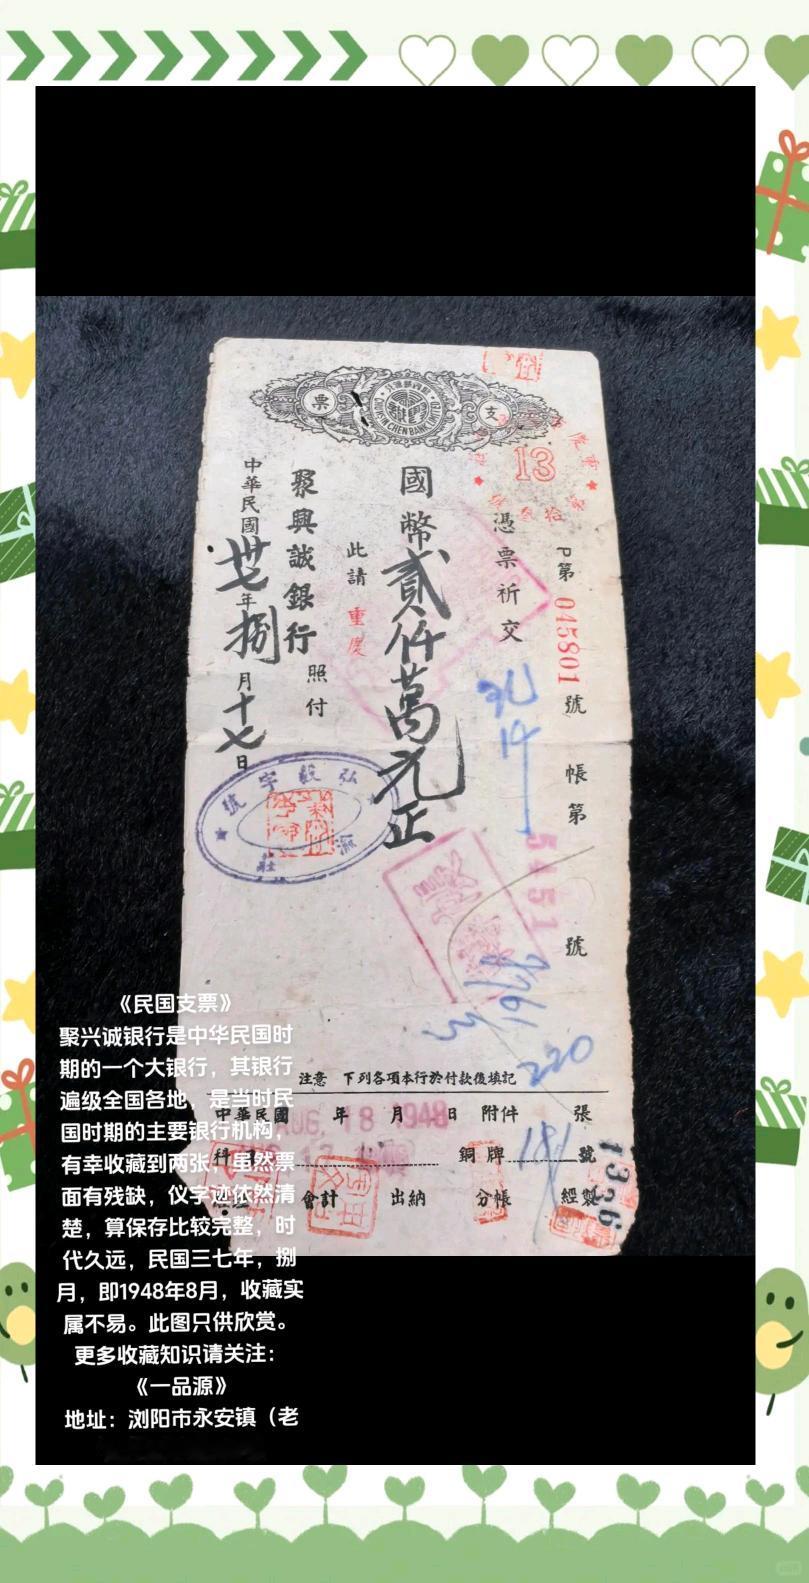 支票
13
P第 045801 號
帳第 5451 號
憑票祈交
國幣貳仟萬元正
此請
重慶
聚興誠銀行
照付
中華民國卅七年捌月十七日
弘毅字號
220
注意 下列各項本行於付款後填記
中華民國 年 月 日 附件 張
AUG. 18 1948
科
銅牌 181 號
會計 出納 分帳 經製
1326
《民国支票》
聚兴诚银行是中华民国时
期的一个大银行，其银行
遍级全国各地，是当时民
国时期的主要银行机构，
有幸收藏到两张，虽然票
面有残缺，仪字迹依然清
楚，算保存比较完整，时
代久远，民国三七年，捌
月，即1948年8月，收藏实
属不易。此图只供欣赏。
更多收藏知识请关注：
《一品源》
地址：浏阳市永安镇（老